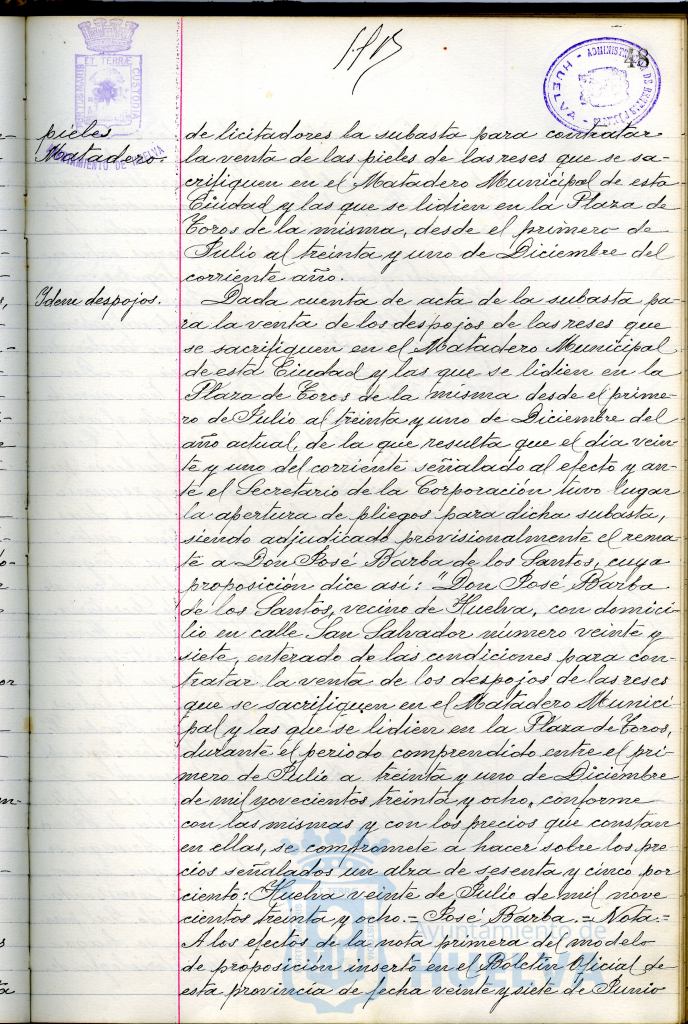 48
ADMINISTR
HUELVA
ET TERRÆ
CUSTODIA
AYUNTAMIENTO DE HUELVA
pieles
Matadero.
de licitadores la subasta para contratar
la venta de las pieles de las reses que se sa-
crifiquen en el Matadero Municipal de esta
Ciudad y las que se lidien en la Plaza de
Toros de la misma, desde el primero de
Julio al treinta y uno de Diciembre del
corriente año.
Idem despojos.
Dada cuenta de acta de la subasta pa-
ra la venta de los despojos de las reses que
se sacrifiquen en el Matadero Municipal
de esta Ciudad y las que se lidien en la
Plaza de Toros de la misma desde el prime-
ro de Julio al treinta y uno de Diciembre del
año actual, de la que resulta que el día vein-
te y uno del corriente señalado al efecto y an-
te el Secretario de la Corporación tuvo lugar
la apertura de pliegos para dicha subasta,
siendo adjudicado provisionalmente el rema-
te a Don José Barba de los Santos, cuya
proposición dice así: "Don José Barba
de los Santos, vecino de Huelva, con domici-
lio en calle San Salvador número veinte y
siete, enterado de las condiciones para con-
tratar la venta de los despojos de las reses
que se sacrifiquen en el Matadero Munici-
pal y las que se lidien en la Plaza de Toros,
durante el periodo comprendido entre el pri-
mero de Julio a treinta y uno de Diciembre
de mil novecientos treinta y ocho, conforme
con las mismas y con los precios que constan
en ellas, se compromete a hacer sobre los pre-
cios señalados un alza de sesenta y cinco por
ciento: Huelva veinte de Julio de mil nove-
cientos treinta y ocho.= José Barba.= Nota.=
A los efectos de la nota primera del modelo
de proposición inserto en el Boletín Oficial de
esta provincia de fecha veinte y siete de Junio
Ayuntamiento de
HUELVA